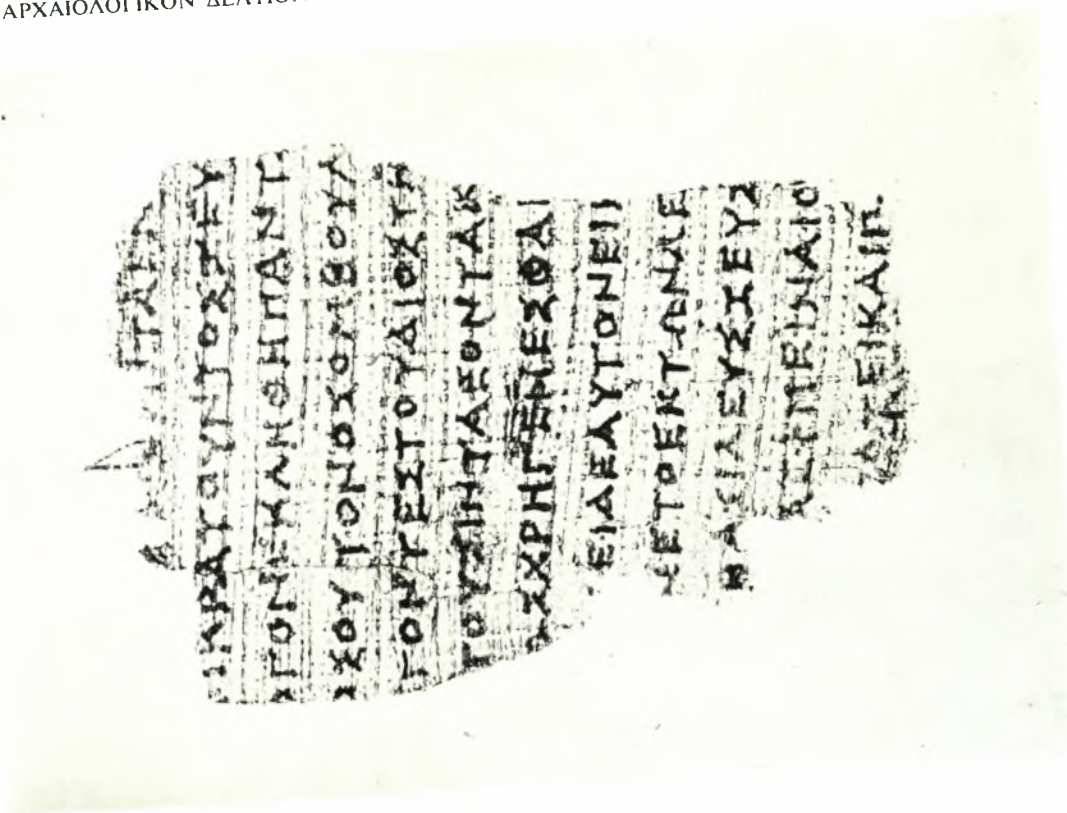 ΑΡΧΑΙΟΛΟΓΙΚΟΝ ΔΕΛΤΙΟΝ
ΙΚΡΑΤΟΥΝΤΟΣΖΕΥ
ΟΓΟΝΕΚΛΗΘΗΠΑΝΤ
ΟΣΟΥΤΟΝΟΣΟΜΒΟΥΛ
ΓΟΝΤΕΣΤΟΥΔΙΟΣΤΗ
ΓΟΥΣΙΝΤΑΕΟΝΤΑΚ
ΣΧΡΗΓΕΝΕΣΘΑΙ
ΕΙΔΕΑΥΤΟΝΕΙ
ΝΕΤΟΕΚΤΩΝΛΕ
ΒΑΣΙΛΕΥΣΖΕΥΣ
ΑΣΕΦΗΕΙΝΑΙΟ
ΑΤΕΙΚΑΙΠ